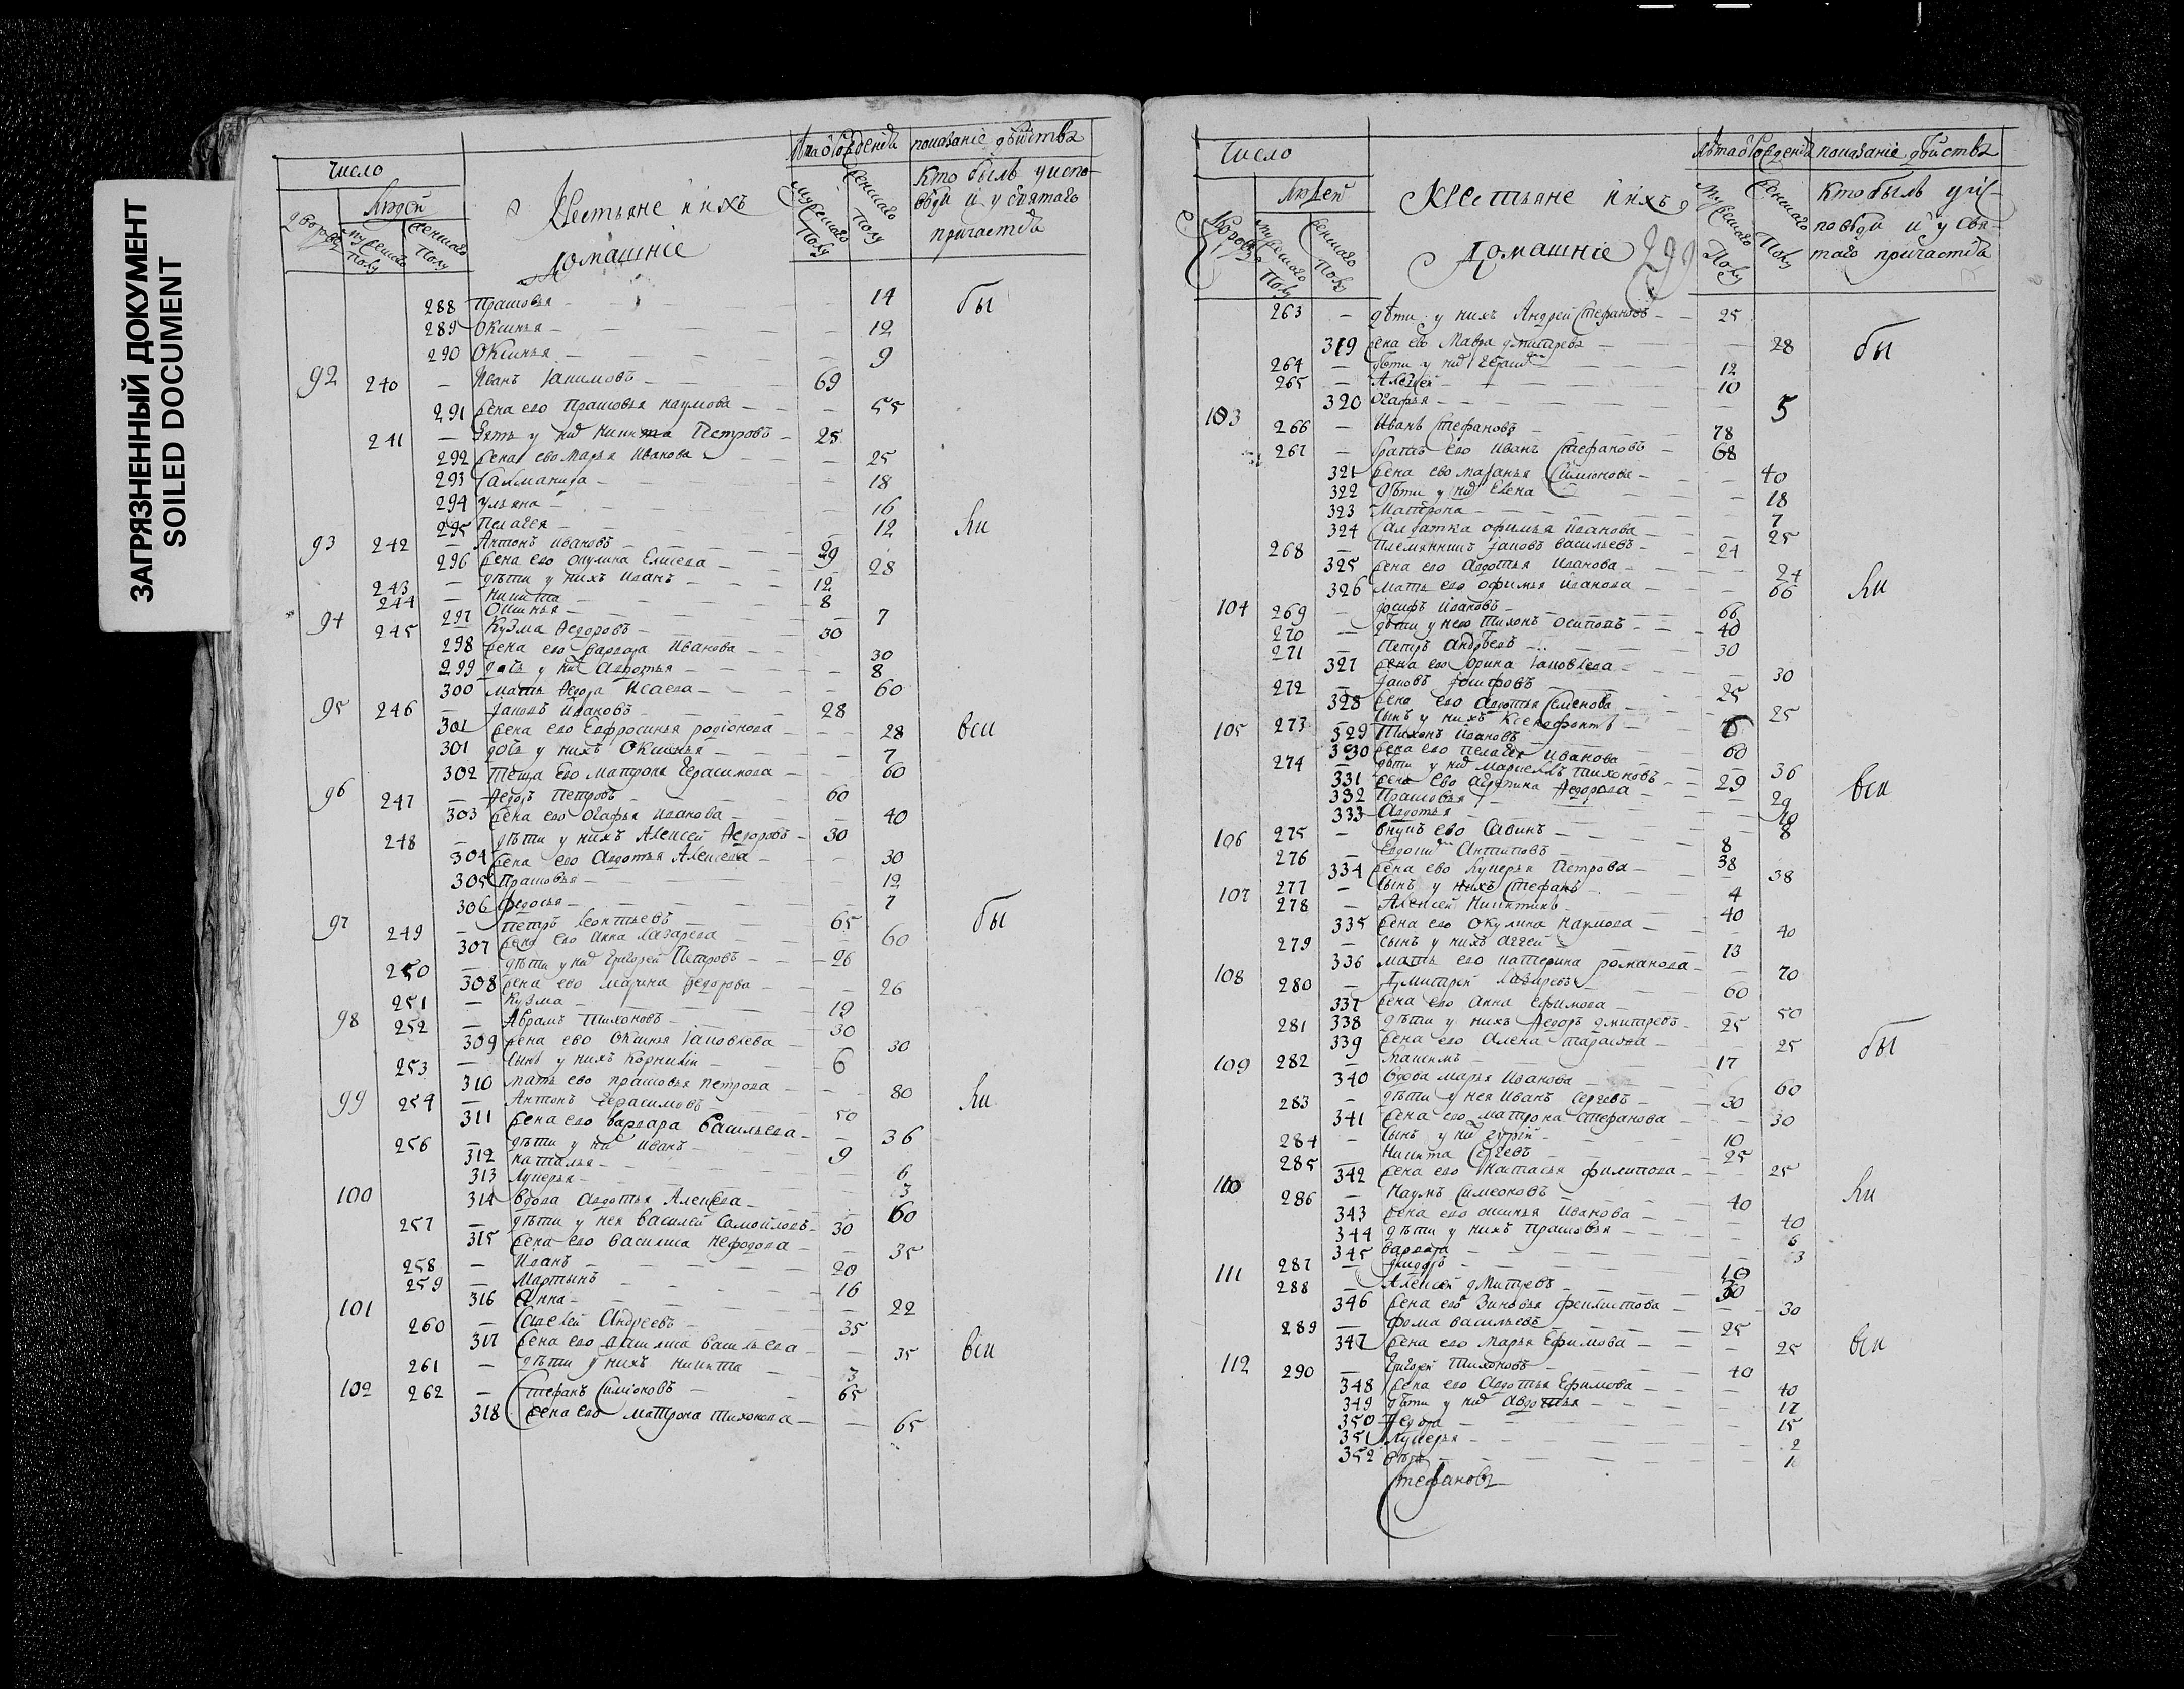 ЗАГРЯЗНЕННЫЙ ДОКУМЕНТ
SOILED DOCUMENT
Число
Людей
дворовъ
мужескаго Полу
женскаго Полу
Крестьяне и ихъ
домашніе
лѣта от рожденія
мужескаго Полу
женскаго Полу
показаніе действа
кто былъ у испо-
вѣди и у святаго
причастія
288 Прасковья 14 бы
289 Оксинья 12
290 Оксинья 9
92 240 Иванъ Iакимовъ 69
291 жена ево Прасковья Наумова 55
241 зять у них Никита Петровъ 25
292 жена ево Марья Иванова 25
293 Салманида 18
294 Ульяна 16
295 Пелагея 12 ли
93 242 Антонъ Ивановъ 29
296 жена ево Окулина Елисева 28
243 дѣти у нихъ Иванъ 12
244 Никита 8
297 Оксинья 7
94 245 Кузма Федоровъ 30
298 жена ево Варвара Иванова 30
299 дочь у них Авдотья 8
300 мать Федора Исаева 60
95 246 Iаковъ Ивановъ 28
301 жена ево Евфросинья Родіонова 28 вси
301 дочь у нихъ Оксинья 7
302 теща Ево Матрона Герасимова 60
96 247 Федоръ Петровъ 60
303 жена ево Огафья Иванова 40
248 дѣти у нихъ Алексей Федоровъ 30
304 жена ево Авдотья Алексева 30
305 Прасковья 12
306 Федосья 7
97 249 Петръ Леонтьевъ 65 бы
307 жена ево Анна Лазарева 60
250 дѣти у них Григорей Петровъ 26
308 жена ево Марина Федорова 26
251 Кузма 19
98 252 Аврамъ Тихоновъ 30
309 жена ево Оксинья Iаковлева 30
253 сынъ у нихъ Корнилій 6
310 мать ево Прасковья Петрова 80
99 254 Антонъ Герасимовъ 50 ли
311 жена ево Варвара Васильева 36
256 дѣти у них Иванъ 9
312 Наталья 6
313 Лукерья 3
100 314 вдова Авдотья Алексева 60
257 дѣти у нея Василей Самойловъ 30
315 жена ево Василиса Нефодова 35
258 Иванъ 20
259 Мартынъ 16
316 Анна 22
101 260 Савелей Андреевъ 35
317 жена ево Василиса Васильева 35 вси
261 дѣти у нихъ Никита 3
102 262 Стефанъ Симіоновъ 65
318 жена ево Матрона Тихонова 65
Число
Людей
дворовъ
мужескаго Полу
женскаго Полу
Крестьяне и ихъ
домашніе
299
лѣта от рожденія
мужескаго Полу
женскаго Полу
показаніе действа
кто былъ у ис-
повѣди и у свя-
таго причастія
263 дѣти у нихъ Андрей Стефановъ 25
319 жена ево Мавра Дмитрева 28 бы
264 дѣти у них 12
265 Алексей 10
320 Огафья 5
103 266 Иванъ Стефановъ 78
267 братъ ево Иванъ Стефановъ 68
321 жена ево Маланья Симіонова 40
322 дѣти у них Елена 18
323 Матрона 7
324 салдатка Офимья Иванова 25
268 племянникъ Iаковъ Васильевъ 24
325 жена ево Авдотья Иванова 24
326 мать ево Офимья Иванова 66 ли
104 269 Iосифъ Ивановъ 66
270 дѣти у нево Тихонъ Осиповъ 40
271 Петръ Андрѣевъ 30
327 жена ево Орина Iаковлева 30
272 Iаковъ 25
328 жена ево Авдотья Семенова 25
сынъ у нихъ Ксенофонтъ 6
105 273 329 Тихонъ Ивановъ 60
330 жена ево Пелагея Иванова 36
274 дѣти у них Маркеллъ Тихоновъ 29
331 жена ево Федорова 29 вси
332 Прасковья 10
333 Авдотья 8
106 275 внукъ ево Савинъ 8
276 Антиповъ 38
334 жена ево Лукерья Петрова 38
277 сынъ у нихъ Стефанъ 4
107 278 Алексей Никитинъ 40
335 жена ево Окулина Наумова 40
279 сынъ у нихъ Аггей 13
336 мать ево Катерина Романова 70
108 280 Дмитрей Лазаревъ 60
337 жена ево Анна Ефимова 50
281 338 дѣти у нихъ Федоръ Дмитревъ 25
339 жена ево Алена Тарасова 25 бы
109 282 Максимъ 17
340 вдова Марья Иванова 60
283 дѣти у нея Иванъ Сергевъ 30
341 жена ево Матрона Стефанова 30
284 сынъ у них Гурій 10
285 Никита Сергевъ 25
342 жена ево Настасья Филипова 25
110 286 Наумъ Симеоновъ 40 ли
343 жена ево Оксинья Иванова 40
344 дѣти у нихъ Прасковья 6
345 Варвара 3
287 10
111 288 Алексей Дмитревъ 30
346 жена ево Зиновья Филипова 30
289 Фома Васильевъ 25
347 жена ево Марья Ефимова 25 вси
112 290 Григорей Тихоновъ 40
348 жена ево Авдотья Ефимова 40
349 дѣти у них Авдотья 17
350 Федора 15
351 Лукерья 2
352 1
Стефановъ